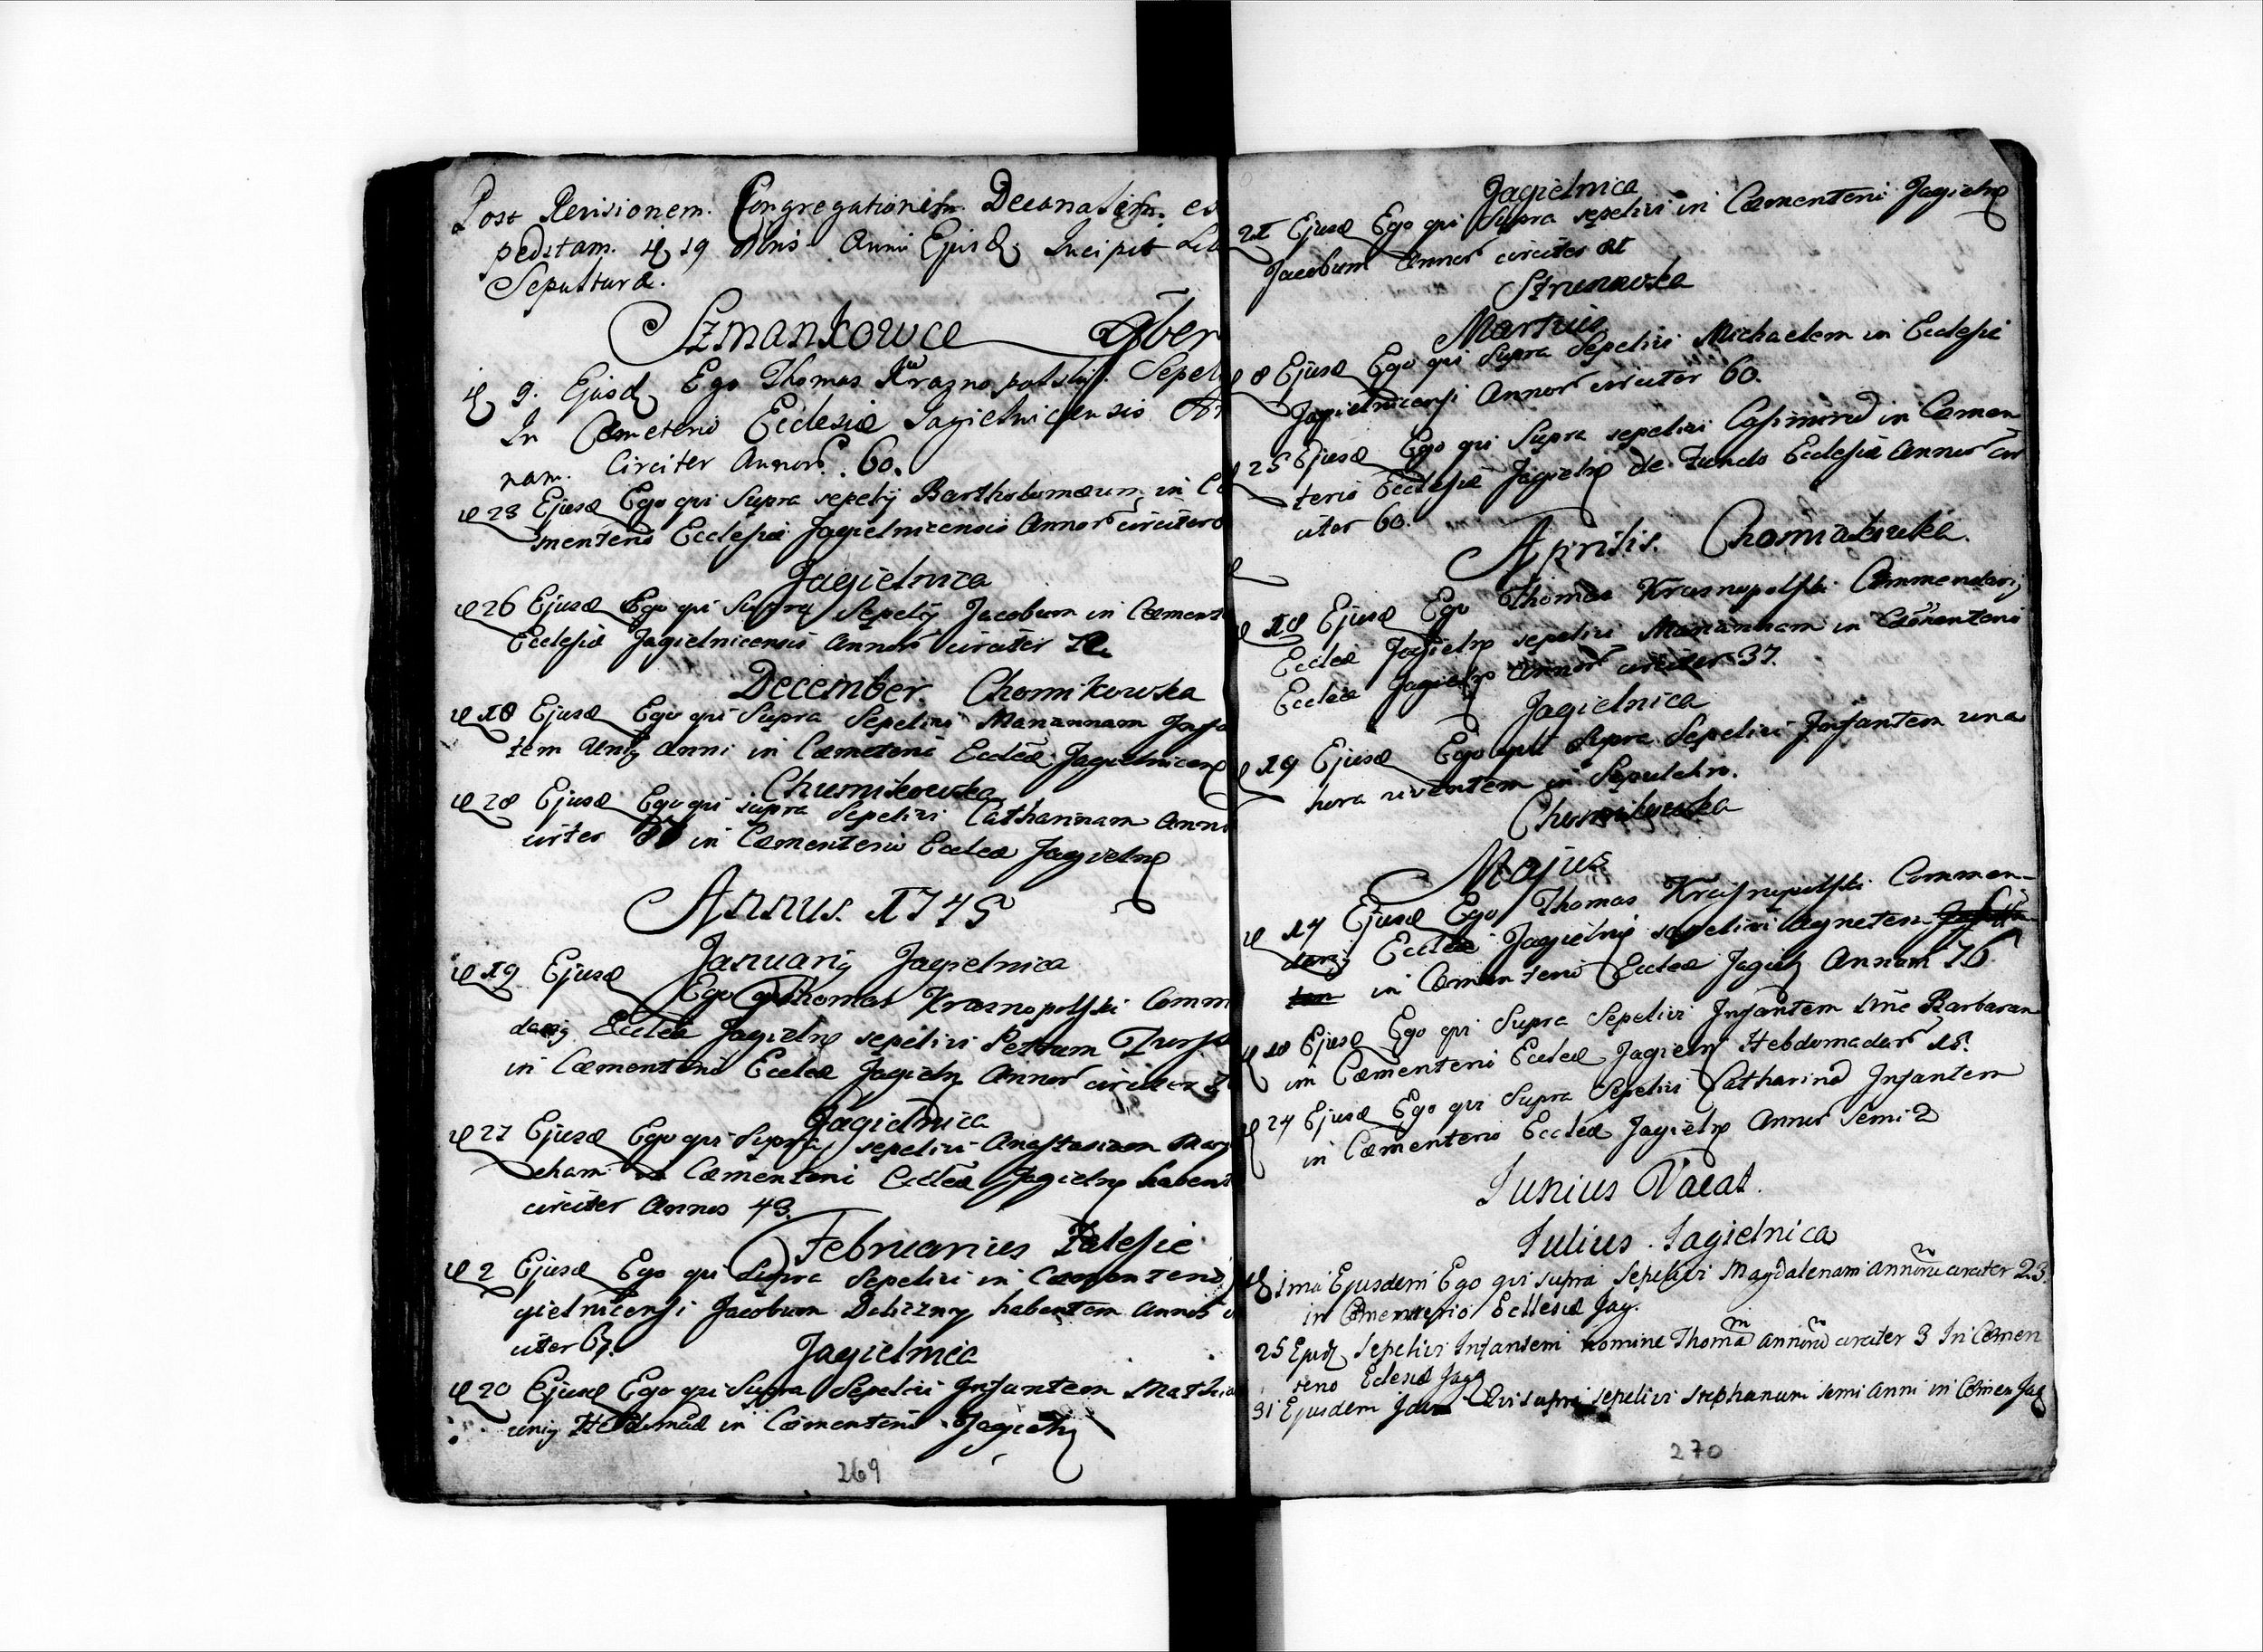 Post Revisionem Congregationem Decanalem ex
peditam. 19 Anni Ejusd. Incipit Lib
Sepulturæ.
Szmankowce 9ber
9. Ejusd Ego Thomas Kraznopolskij Sepel
In Cæmeterio Ecclesiæ Jagielnicensis An
nam. Circiter Annor. 60.
23 Ejusd Ego qui Supra sepelij Bartholomæum in Cæ
menterio Ecclesiæ Jagielnicensis Annor circiter
Jagielnica
26 Ejusd Ego qui Supra Sepelij Jacobum in Cæment
Ecclesiæ Jagielnicensis Annor circiter
December. Chomikowka
18 Ejusd Ego qui Supra Sepelivi Mariannam Infa
tem Unig anni in Cæmeterio Eccleæ Jagielnicen
Chumikowka
28 Ejusd Ego qui supra Sepelivi Catharinam Anno
circiter in Cæmenterio Eccleæ Jagieln
Annus 1745
Januarij Jagielnica
19 Ejusd Ego Thomas Krasnopolski Comm
darij Eccleæ Jagieln sepelivi Petrum
in Cæmenterio Eccleæ Jagieln Annor circiter
Jagielnica
27 Ejusd Ego qui Supra sepelivi Anastasiam
cham in Cæmenterio Eccleæ Jagieln habent
circiter Annos 43.
Februarius Zalesie
2 Ejusd Ego qui Supra Sepelivi in Cæmenterio
gielnicensi Jacobum habentem annos
citer 67.
Jagielnica
20 Ejusd Ego qui Supra Sepelivi Infantem Mathia
unig Hebdomad in Cæmenterio Jagieln
269
Jagielnica
21 Ejusd Ego qui Supra sepelivi in Cæmenterii Jagieln
Jacobum Annor circiter
Martius
8 Ejusd Ego qui Supra Sepelivi Michaelem in Ecclesie
Jagielnicensi Annor circiter 60.
25 Ejusd Ego qui Supra sepelivi Casimird in Cæmen
terio Ecclesiæ Jagieln de Fundo Ecclesiæ Annor cir
citer 60.
Aprilis. Chomiakowka.
18 Ejusd Ego Thomas Krasnopolski Commendarij
Eccleæ Jagieln sepelivi Mariannam in Cæmenterio
Eccleæ Jagieln Annor circiter 37.
Jagielnica
19 Ejusd Ego qui Supra Sepelivi Infantem una
hora viventem in Sepulchro.
Chomikowka
Majus
14 Ejusd Ego Thomas Krasnopolski Commen-
darij Eccleæ Jagieln sepelivi Agnetem
in Cæmenterio Eccleæ Jagiel Annam 76
18 Ejusd Ego qui Supra Sepelivi Infantem nne Barbaram
in Cæmenterio Eccleæ Jagieln Hebdomadar 18.
24 Ejusd Ego qui Supra Sepelivi Catharind Infantem
in Cæmenterio Eccleæ Jagieln Annor Semi 2
Junius Vacat.
Julius. Jagielnica
1ma Ejusdem Ego qui supra Sepelivi Magdalenam annoru circiter 23.
in Cæmenterio Ecclesiæ Jag.
25 Ejusd Sepelivi Infantem nomine Thoma annoru circiter 3 In Cæmen
terio Eclesiæ Jag
31 Ejusdem Idem Qui supra sepelivi Stephanum semi anni in Cæmen Jag
270